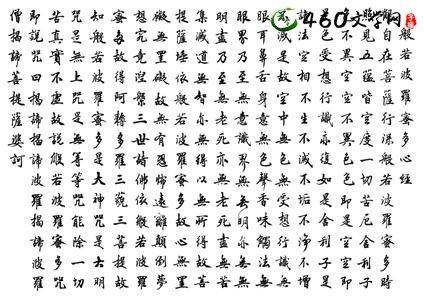 460文学网
般若波羅蜜多心經
觀自在菩薩行深般若波羅蜜多時
照見五蘊皆空度一切苦厄舍利子
色不異空空不異色色即是空空即
是色受想行識亦復如是舍利子是
諸法空相不生不滅不垢不淨不增
不減是故空中無色無受想行識無
眼耳鼻舌身意無色聲香味觸法無
眼界乃至無意識界無無明亦無無
明盡乃至無老死亦無老死盡無苦
集滅道無智亦無得以無所得故菩
提薩埵依般若波羅蜜多故心無罣
礙無罣礙故無有恐怖遠離顛倒夢
想究竟涅槃三世諸佛依般若波羅
蜜多故得阿耨多羅三藐三菩提故
知般若波羅蜜多是大神咒是大明
咒是無上咒是無等等咒能除一切
苦真實不虛故說般若波羅蜜多咒
即說咒曰揭諦揭諦波羅揭諦波羅
僧揭諦菩提薩婆訶